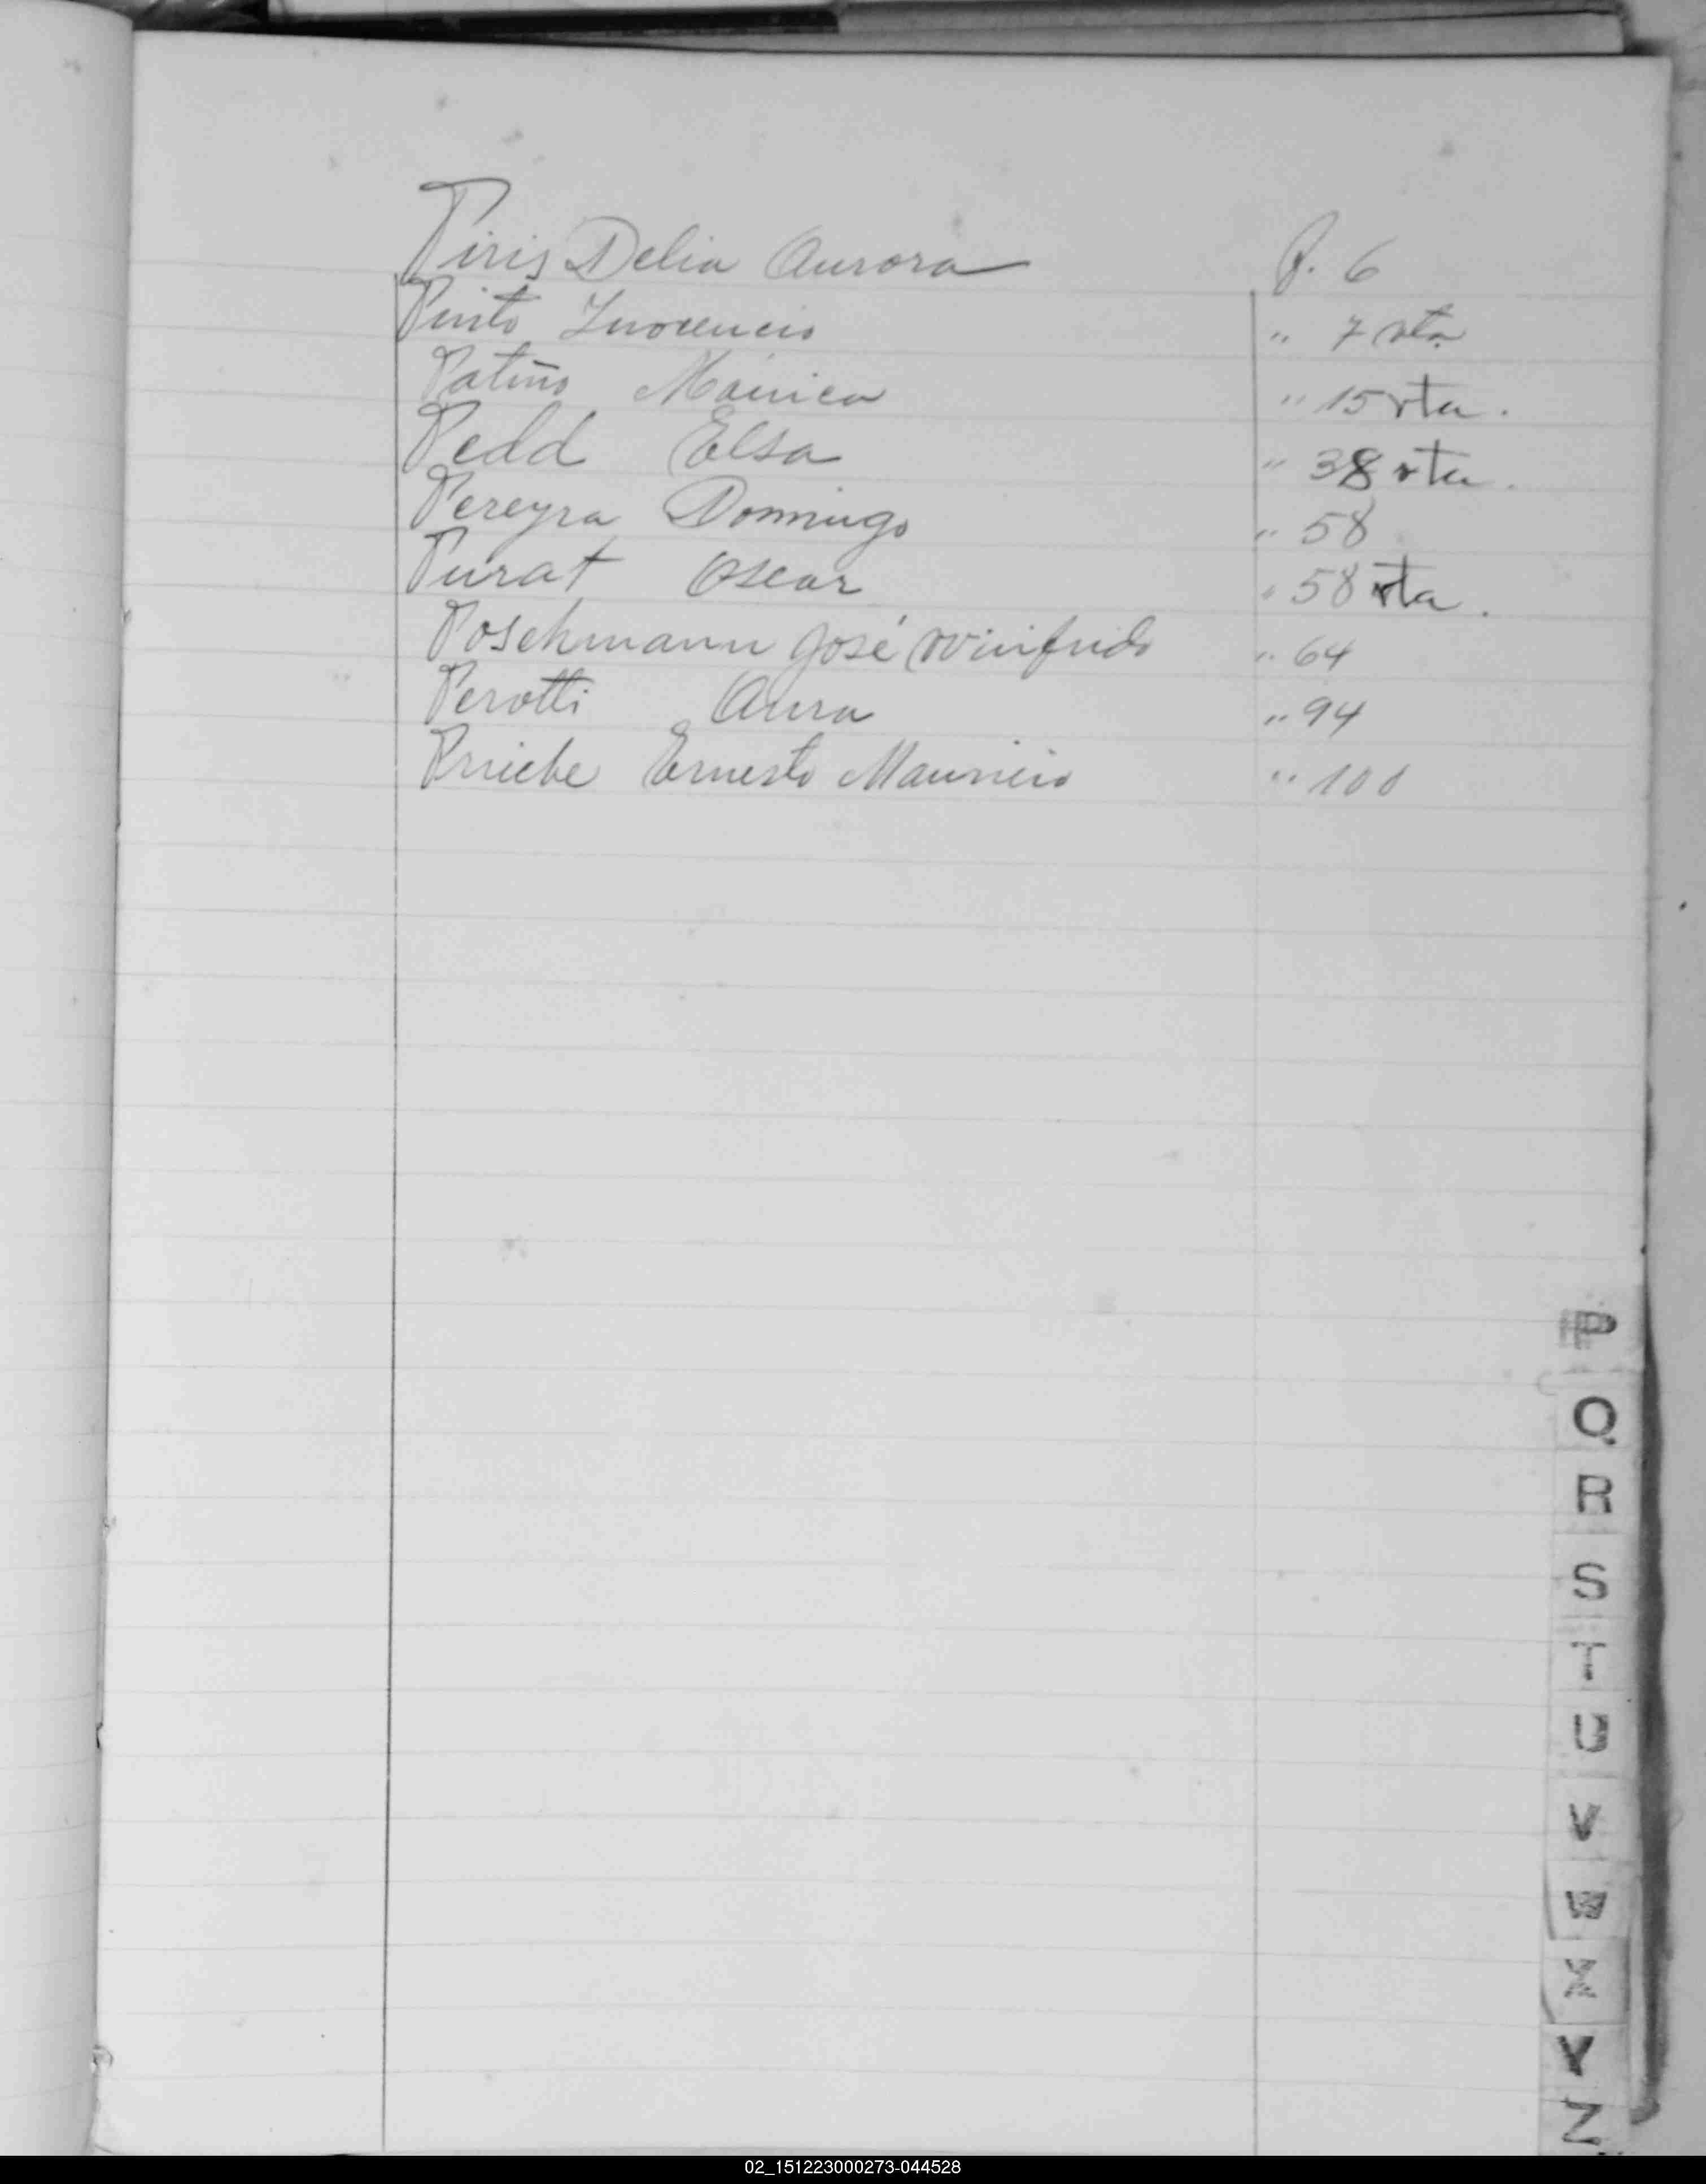 Piris Delia Aurora P. 6
Pinto Inocencio " 7 vta
Patiño Mónica " 15 vta.
Pedd Elsa " 38 vta.
Pereyra Domingo " 58
Purat Oscar " 58 vta.
Poschmann José Winifrido " 64
Perotti " 94
Ernesto Mauricio " 100
P
Q
R
S
T
U
V
W
X
Y
Z
02_151223000273-044528